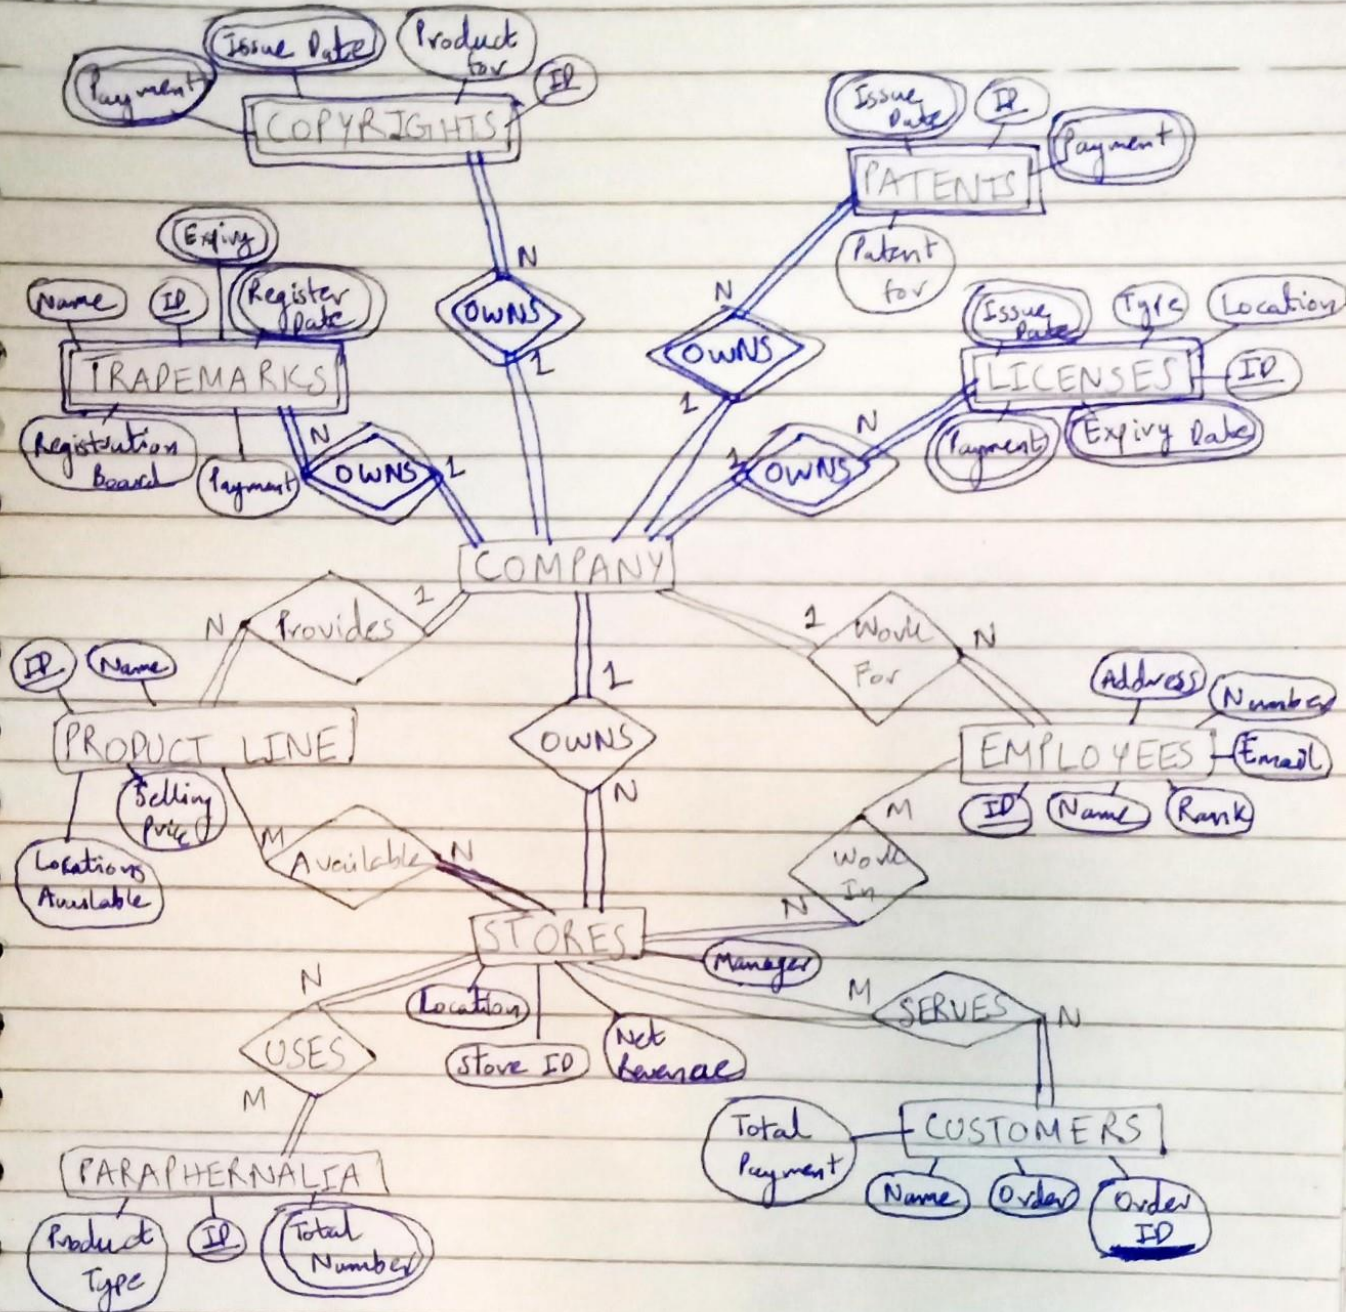 Issue Date
Product
for
Payment
ID
COPYRIGHTS
Issue
Date
ID
Payment
PATENTS
Patent
for
N
OWNS
1
N
OWNS
1
Expiry
Name
ID
Register
Date
TRADEMARKS
Registration
Board
Payment
N
OWNS
1
Issue
Date
Type
Location
LICENSES
ID
Payment
Expiry Date
N
OWNS
1
COMPANY
1
Provides
N
1
Work
For
N
1
OWNS
N
ID
Name
PRODUCT LINE
Selling
Price
Locations
Available
M
Available
N
Address
Number
EMPLOYEES
Email
ID
Name
Rank
M
Work
In
N
STORES
Manager
Location
Store ID
Net
Revenue
N
USES
M
M
SERVES
N
PARAPHERNALIA
Product
Type
ID
Total
Number
CUSTOMERS
Total
Payment
Name
Order
Order
ID